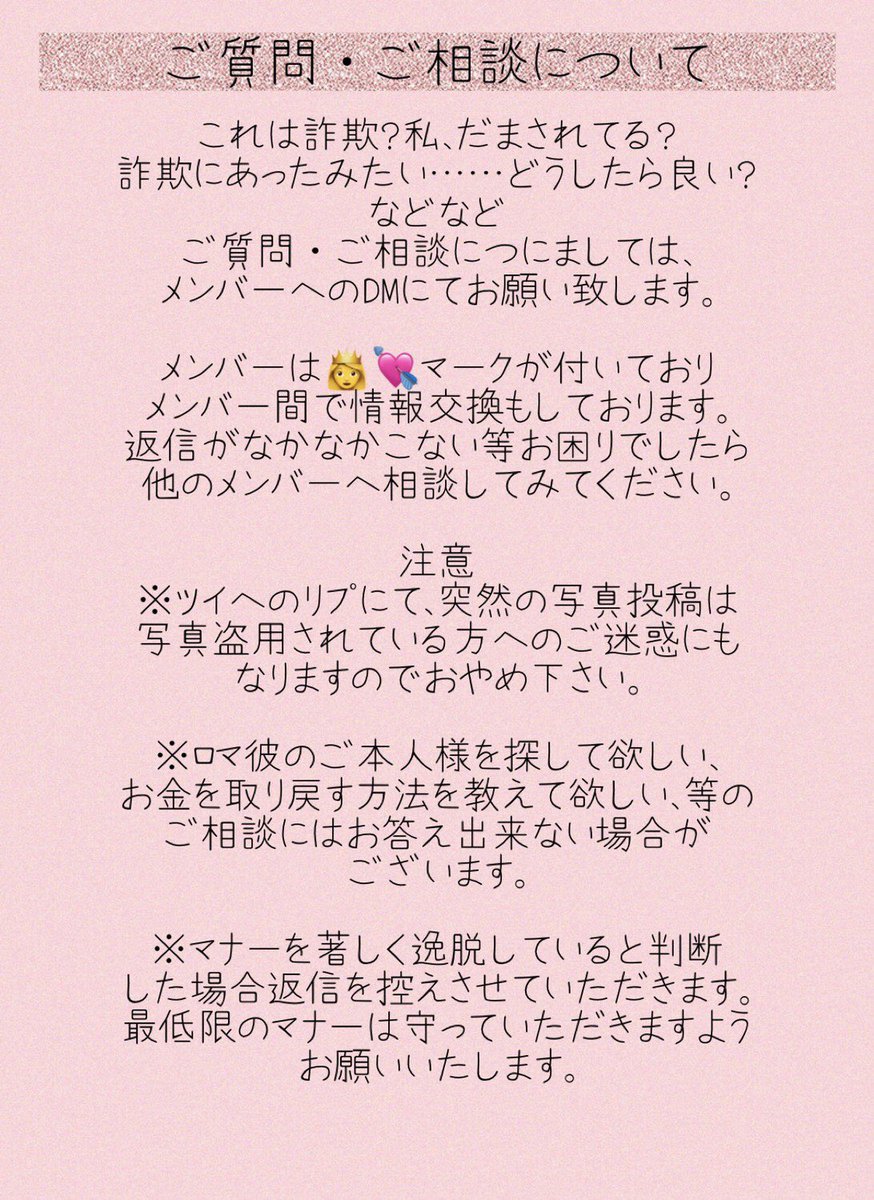 ご質問・ご相談について
これは詐欺?私、だまされてる?
詐欺にあったみたい……どうしたら良い?
などなど
ご質問・ご相談につにましては、
メンバーへのDMにてお願い致します。
メンバーは👸💘マークが付いており
メンバー間で情報交換もしております。
返信がなかなかこない等お困りでしたら
他のメンバーへ相談してみてください。
注意
※ツイへのリプにて、突然の写真投稿は
写真盗用されている方へのご迷惑にも
なりますのでおやめ下さい。
※ロマ彼のご本人様を探して欲しい、
お金を取り戻す方法を教えて欲しい、等の
ご相談にはお答え出来ない場合が
ございます。
※マナーを著しく逸脱していると判断
した場合返信を控えさせていただきます。
最低限のマナーは守っていただきますよう
お願いいたします。